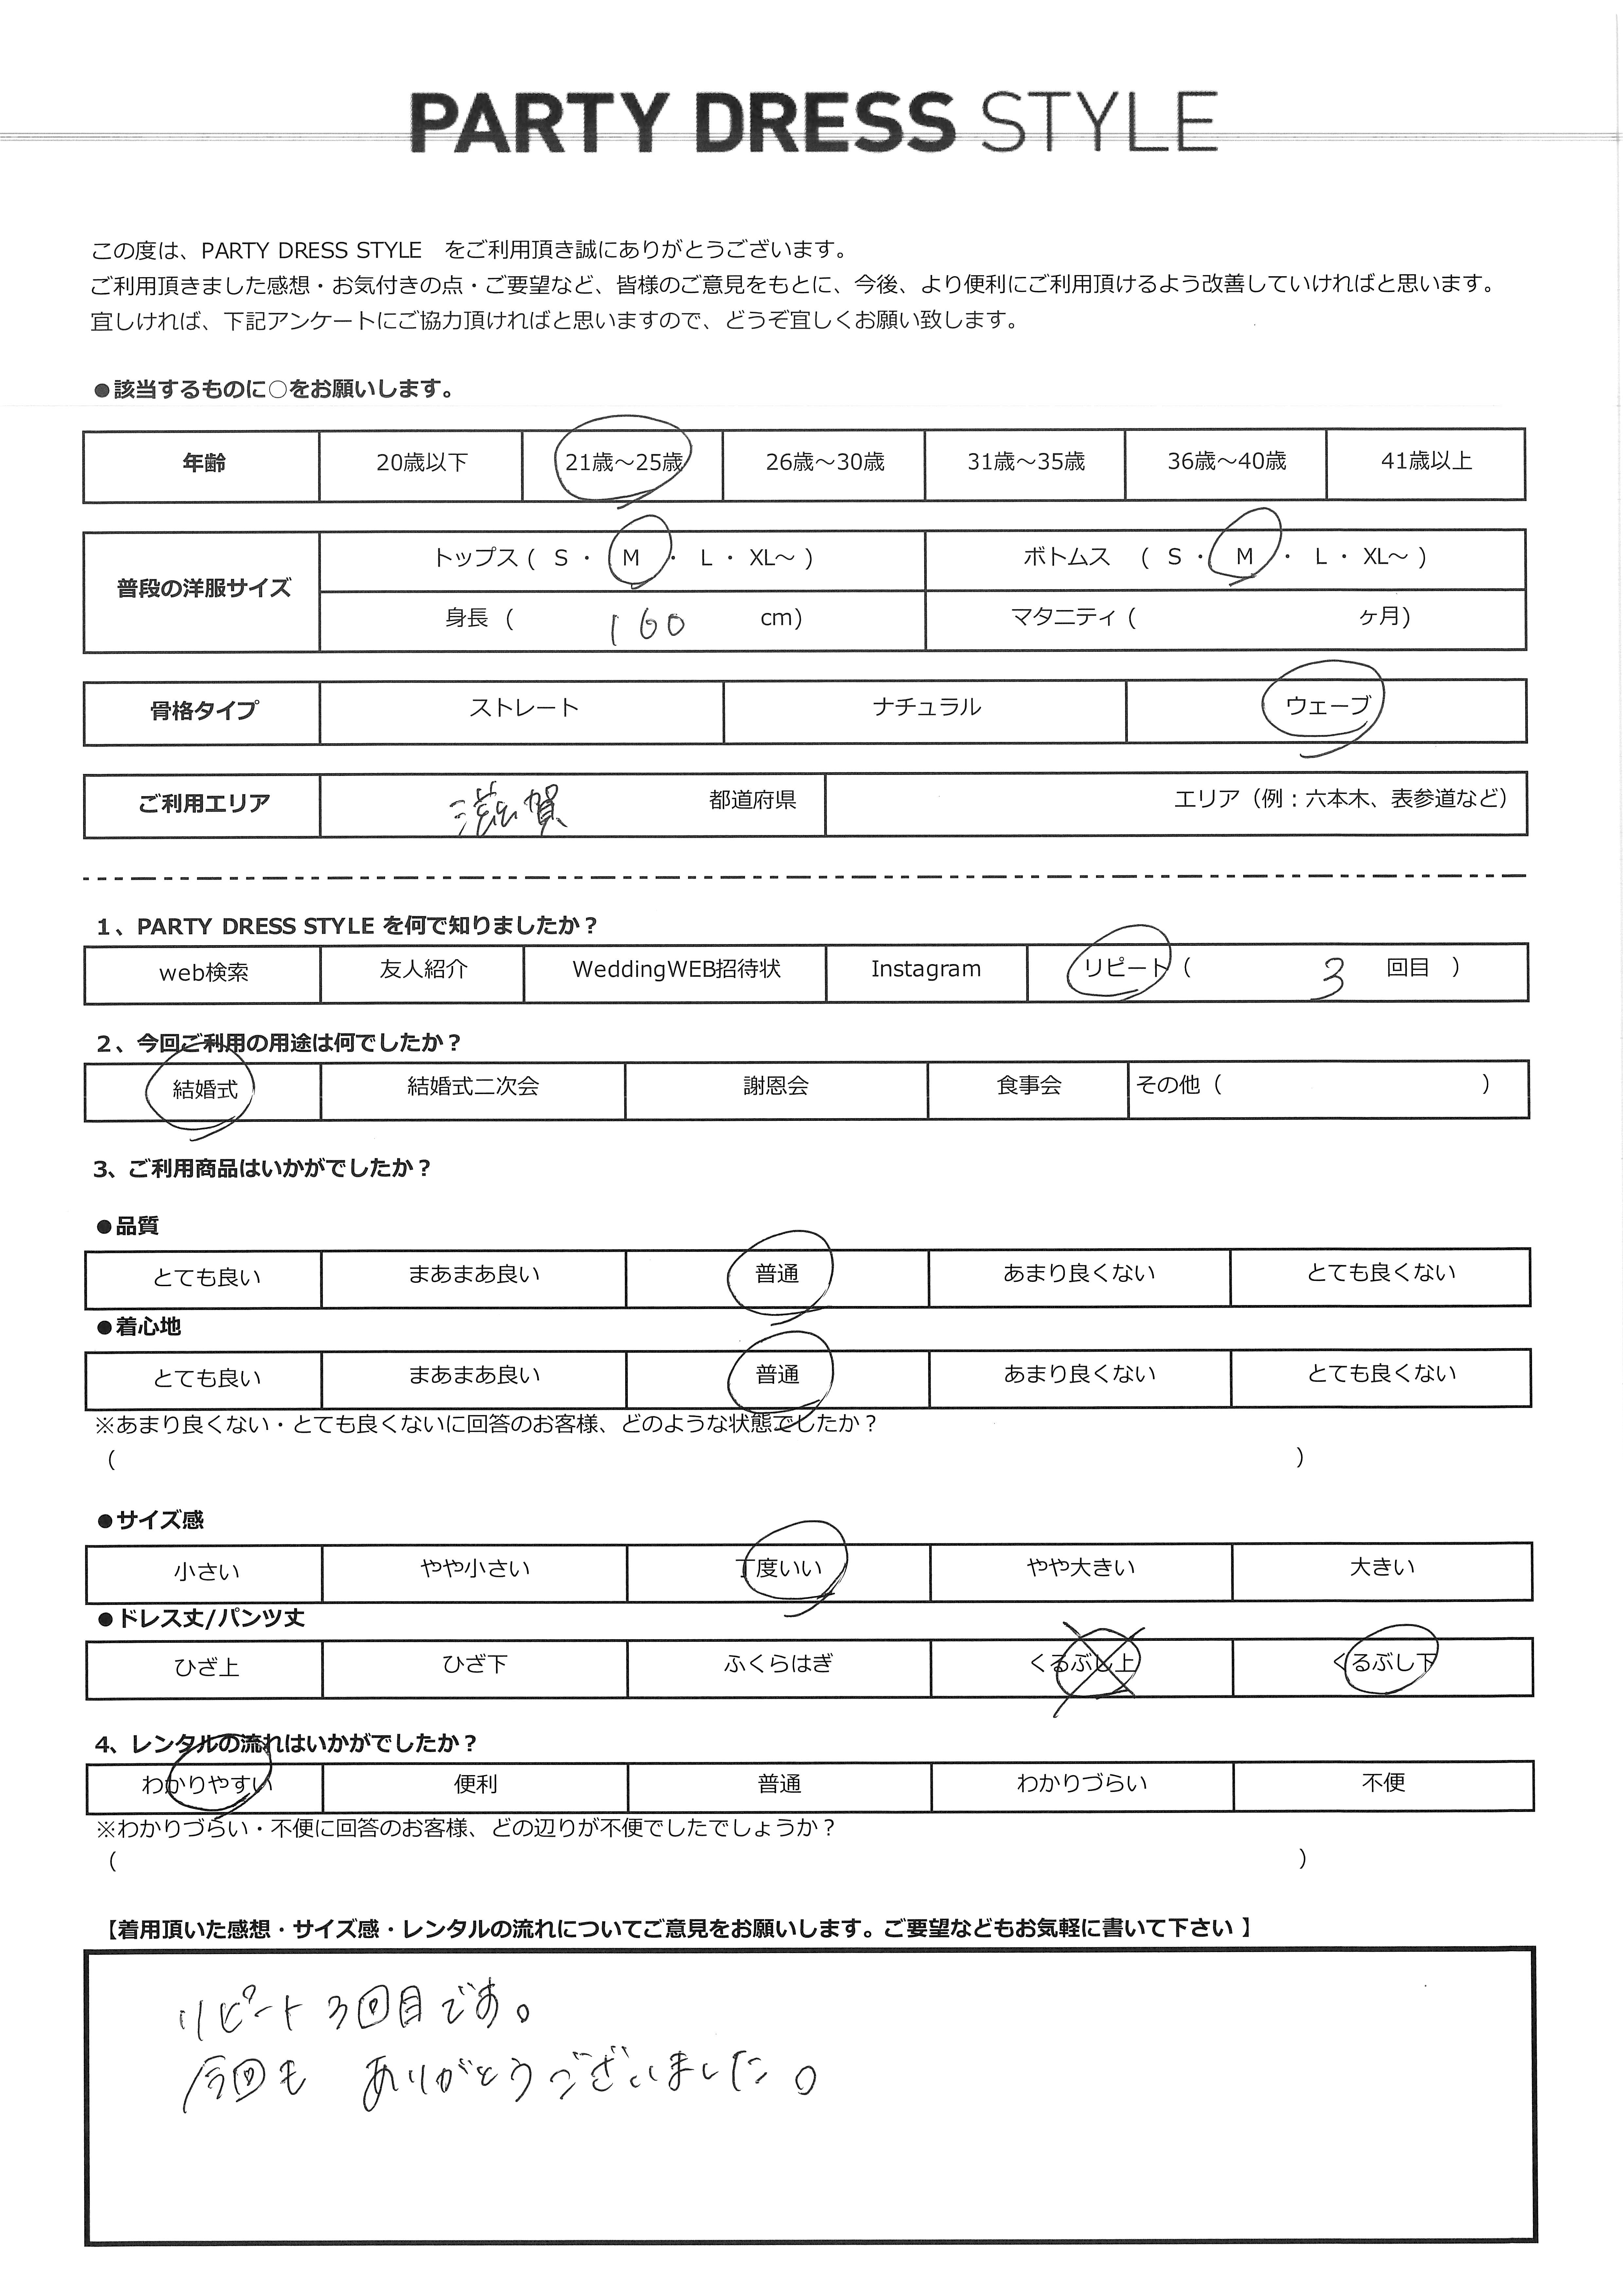 PARTY DRESS STYLE
この度は、PARTY DRESS STYLE　をご利用頂き誠にありがとうございます。
ご利用頂きました感想・お気付きの点・ご要望など、皆様のご意見をもとに、今後、より便利にご利用頂けるよう改善していければと思います。
宜しければ、下記アンケートにご協力頂ければと思いますので、どうぞ宜しくお願い致します。
●該当するものに○をお願いします。
年齢 20歳以下 21歳～25歳 26歳～30歳 31歳～35歳 36歳～40歳 41歳以上
普段の洋服サイズ トップス ( S ・ M ・ L ・ XL～ ) ボトムス ( S ・ M ・ L ・ XL～ )
身長 ( 160 cm) マタニティ ( ヶ月)
骨格タイプ ストレート ナチュラル ウェーブ
ご利用エリア 滋賀 都道府県 エリア（例：六本木、表参道など）
1、PARTY DRESS STYLE を何で知りましたか？
web検索 友人紹介 WeddingWEB招待状 Instagram リピート ( 3 回目 )
2、今回ご利用の用途は何でしたか？
結婚式 結婚式二次会 謝恩会 食事会 その他 ( )
3、ご利用商品はいかがでしたか？
●品質
とても良い まあまあ良い 普通 あまり良くない とても良くない
●着心地
とても良い まあまあ良い 普通 あまり良くない とても良くない
※あまり良くない・とても良くないに回答のお客様、どのような状態でしたか？
( )
●サイズ感
小さい やや小さい 丁度いい やや大きい 大きい
●ドレス丈/パンツ丈
ひざ上 ひざ下 ふくらはぎ くるぶし上 くるぶし下
4、レンタルの流れはいかがでしたか？
わかりやすい 便利 普通 わかりづらい 不便
※わかりづらい・不便に回答のお客様、どの辺りが不便でしたでしょうか？
( )
【着用頂いた感想・サイズ感・レンタルの流れについてご意見をお願いします。ご要望などもお気軽に書いて下さい 】
リピート3回目です。
今回も ありがとうございました。